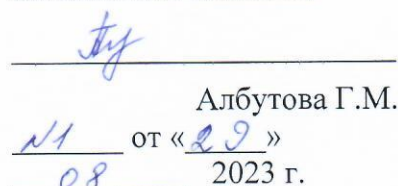 Албутова Г.М.
№1 от «29»
08 2023 г.